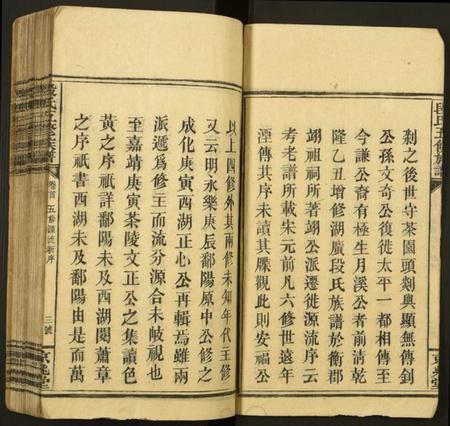 剎之後世守茶園頭剡與顯無傳釗
公孫文奇公復徙太平一都相傳至
今謙公裔有極生月溪公者前清乾
隆乙丑增修湖廣段氏族譜於衡郡
翊祖祠所著翊公派遷徙源流序云
考老譜所載朱元前凡六修世遠年
湮傳其序未讀其牒觀此則安福公
以上四修外其兩修未知年代主修
又云明永樂庚辰鄱陽原中公修之
成化庚寅西湖正心公再輯焉雖兩
派遞爲修主而流分源合未岐視也
至嘉靖庚寅茶陵文正公之集讀色
黃之序祇詳鄱陽未及西湖閱蕭章
之序祇書西湖未及鄱陽由是而萬
段氏五修族譜
卷首
五修源流新序
三號
京兆堂
段氏五修族譜
京兆堂